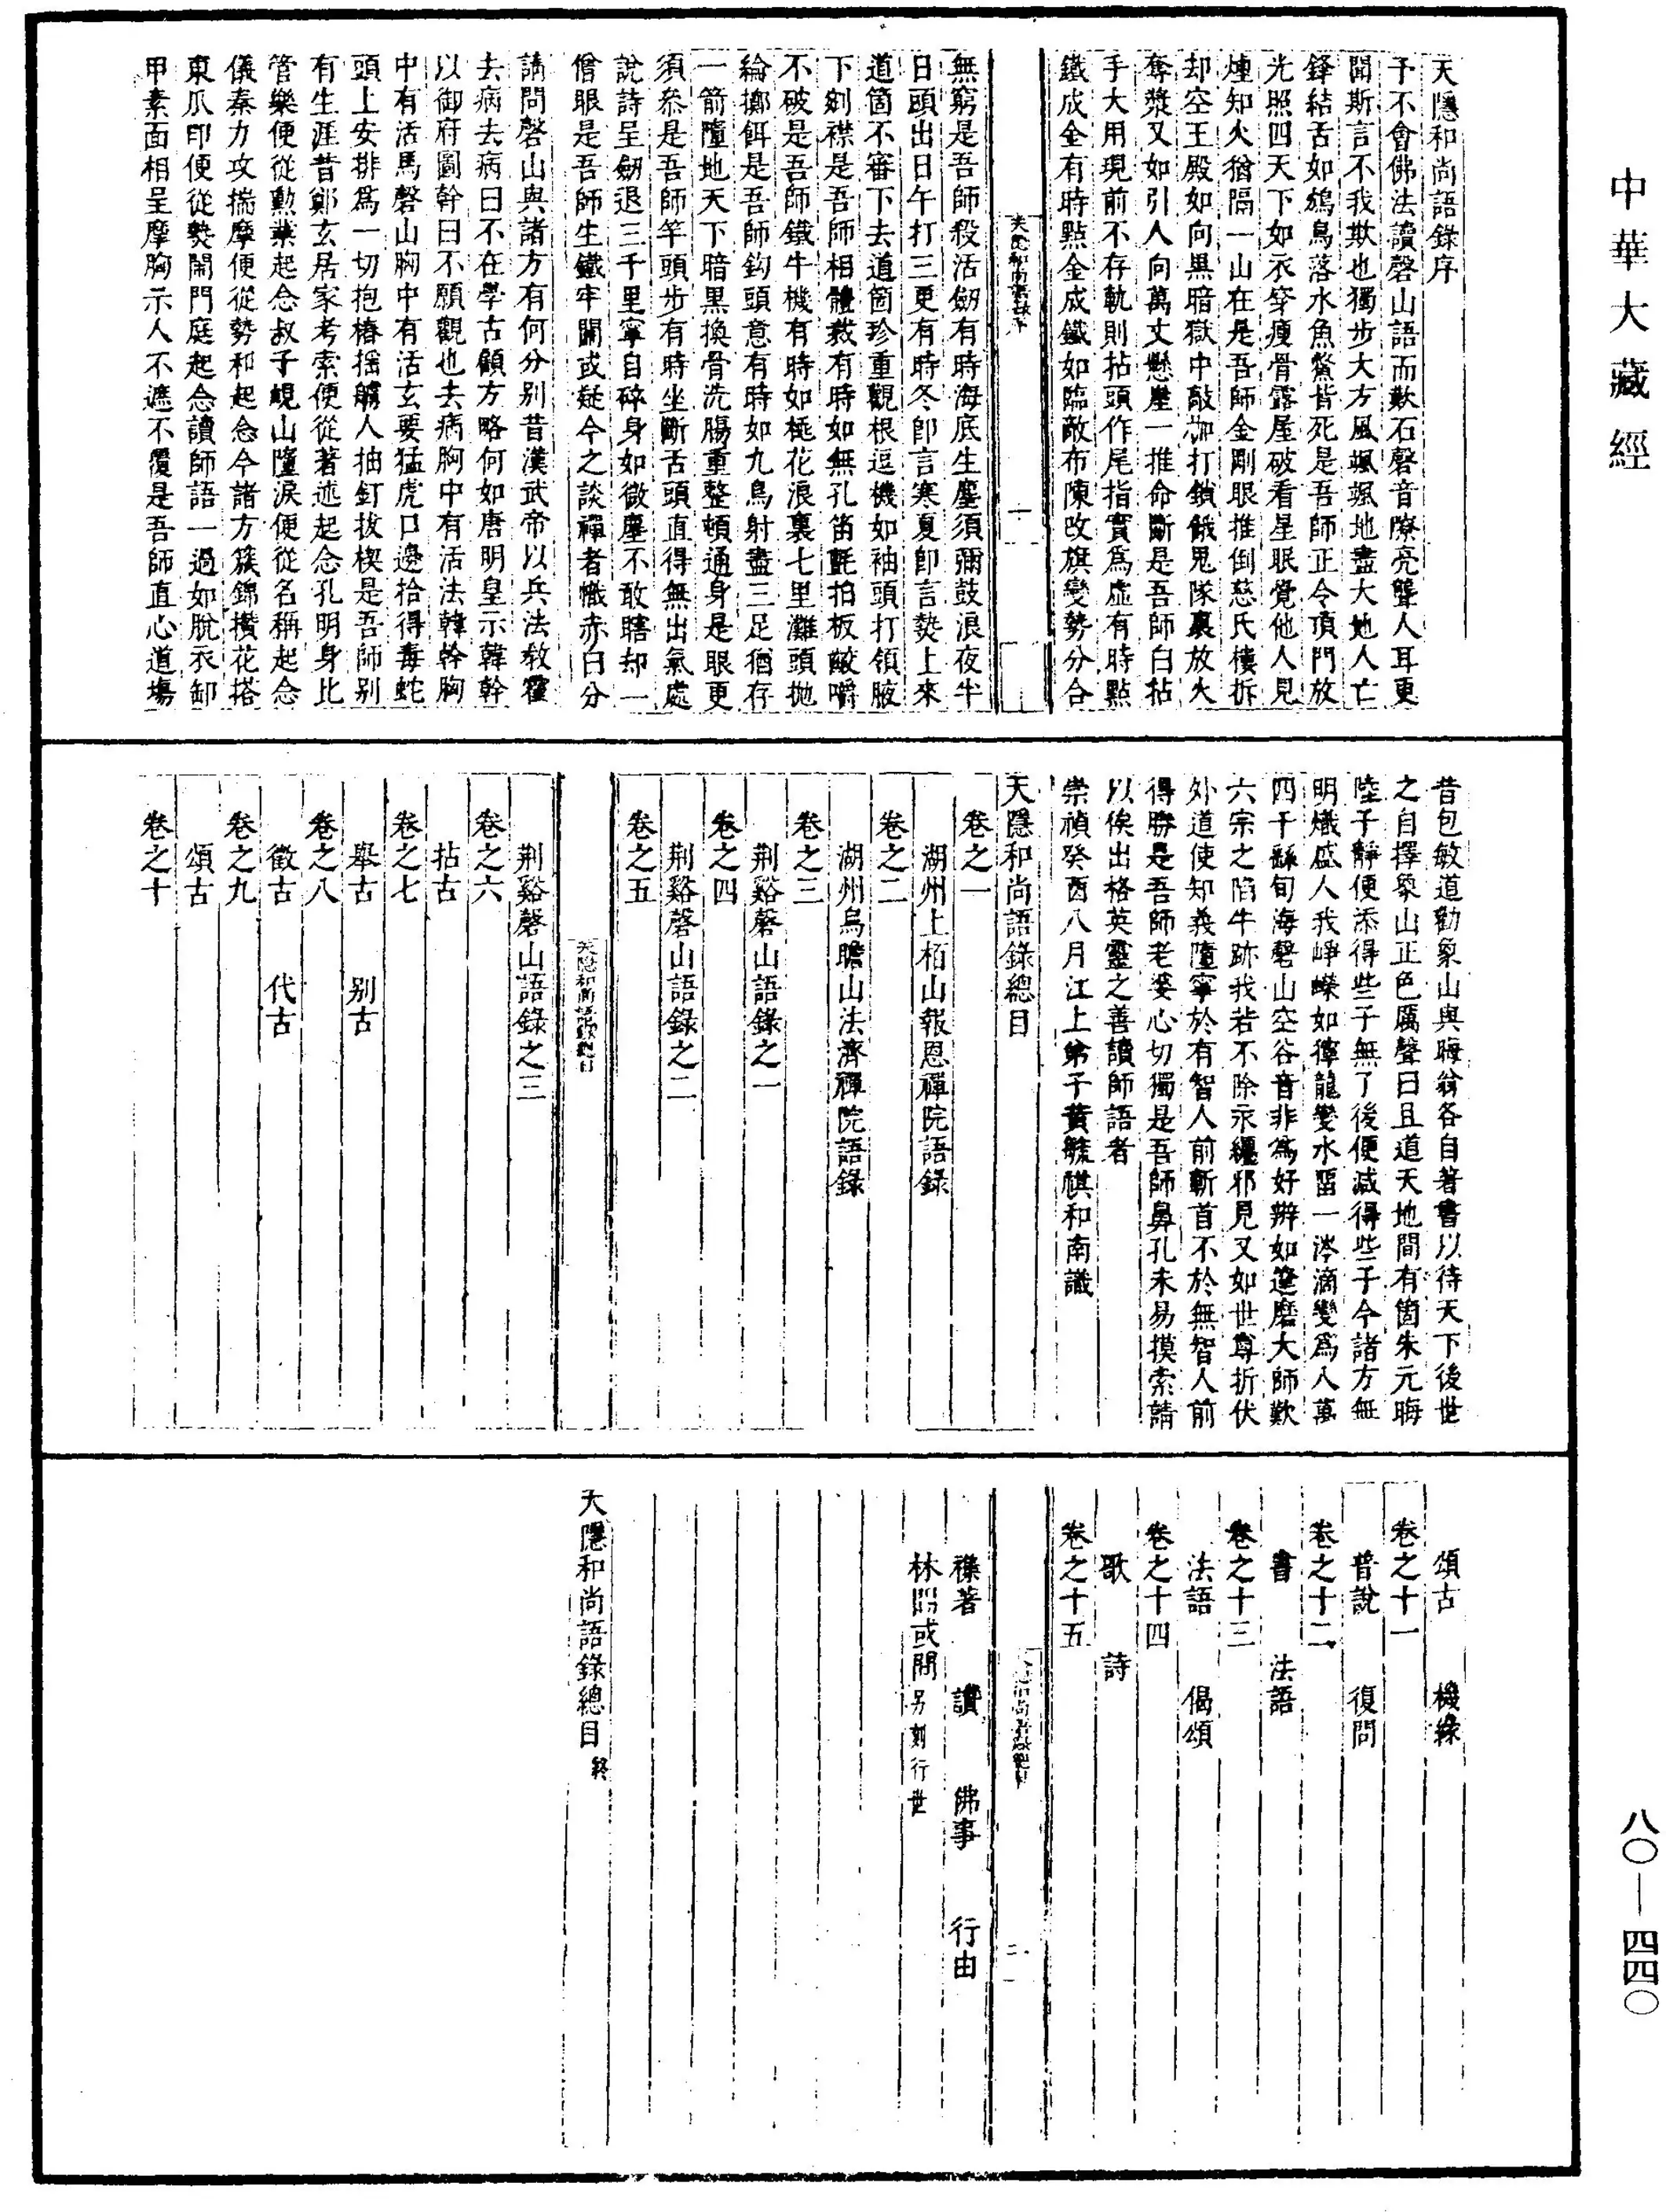 中華大藏經
天隱和尚語錄序
予不會佛法讀磬山語而歎石磬音嘹亮聾人耳更
聞斯言不我欺也獨步大方風颯颯地盡大地人亡
鋒結舌如鴆鳥落水魚鱉皆死是吾師正令頂門放
光照四天下如衣穿瘦骨露屋破看星眠覺他人見
煙知火猶隔一山在是吾師金剛眼推倒慈氏樓拆
却空王殿如向黑暗獄中敲枷打鎖餓鬼隊裏放火
奪漿又如引人向萬丈懸崖一推命斷是吾師白拈
手大用現前不存軌則拈頭作尾指實為虛有時點
鐵成金有時點金成鐵如臨敵布陳改旗變勢分合
無窮是吾師殺活劒有時海底生塵須彌鼓浪夜半
日頭出日午打三更有時冬卽言寒夏卽言熱上來
道箇不審下去道箇珍重觀根逗機如袖頭打領腋
下剜襟是吾師相體裁有時如無孔笛氈拍板齩嚼
不破是吾師鐵牛機有時如桃花浪裏七里灘頭拋
綸擲餌是吾師鈎頭意有時如九鳥射盡三足猶存
一箭墮地天下暗黑換骨洗腸重整頓通身是眼更
須叅是吾師竿頭步有時坐斷舌頭直得無出氣處
說詩呈劒退三千里寧自碎身如微塵不敢瞎却一
僧眼是吾師生鐵牢關或疑今之談禪者幟赤白分
請問磬山與諸方有何分别昔漢武帝以兵法敎霍
去病去病曰不在學古顧方略何如唐明皇示韓幹
以御府圖幹曰不願觀也去病胸中有活法韓幹胸
中有活馬磬山胸中有活玄要猛虎口邊拾得毒蛇
頭上安排爲一切抱樁搖艣人抽釘拔楔是吾師别
有生涯昔鄭玄居家考索便從著述起念孔明身比
管樂便從勳業起念叔子峴山墮淚便從名稱起念
儀秦力攻揣摩便從勢利起念今諸方簇錦攢花搭
東瓜印便從熱鬧門庭起念讀師語一過如脫衣卸
甲素面相呈摩胸示人不遮不覆是吾師直心道場
昔包敏道勸象山與晦翁各自著書以待天下後世
之自擇象山正色厲聲曰且道天地間有箇朱元晦
陸子靜便添得些子無了後便減得些子今諸方無
明熾盛人我崢嶸如獰龍變水留一涔滴變爲八萬
四千繇旬海磬山空谷音非爲好辨如達磨大師歎
六宗之陷牛跡我若不除永纏邪見又如世尊折伏
外道使知義墮寧於有智人前斬首不於無智人前
得勝是吾師老婆心切獨是吾師鼻孔未易摸索請
以俟出格英靈之善讀師語者
崇禎癸酉八月江上弟子黃毓祺和南識
天隱和尚語錄總目
卷之一
湖州上栢山報恩禪院語錄
卷之二
湖州烏瞻山法濟禪院語錄
卷之三
荆谿磬山語錄之一
卷之四
荆谿磬山語錄之二
卷之五
荆谿磬山語錄之三
卷之六
拈古
卷之七
舉古　别古
卷之八
徵古　代古
卷之九
頌古
卷之十
頌古　機緣
卷之十一
普說　復問
卷之十二
書　法語
卷之十三
法語　偈頌
卷之十四
歌　詩
卷之十五
襍著　讚　佛事　行由
林間或問 另刻行世
天隱和尚語錄總目 終
八〇—四四〇